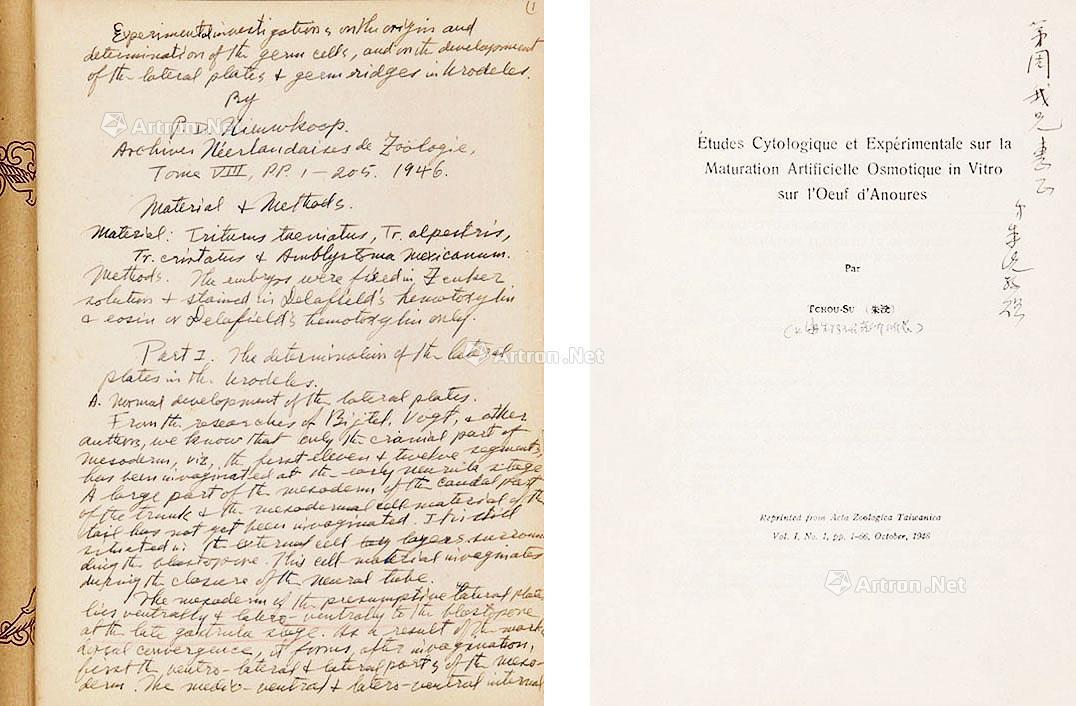 (1
Experimental investigations on the origin and
determination of the germ cells, and on the development
of the lateral plates & germ ridges in Urodeles.
By
P.D. Nieuwkoop.
Archives Néerlandaises de Zoologie,
Tome VIII, PP. 1–205. 1946.
Material & Methods.
Material: Triturus taeniatus, Tr. alpestris,
Tr. cristatus & Amblystoma mexicanum.
Methods. The embryos were fixed in Zenker
solution & stained in Delafield's hemotoxylin
& eosin or Delafield's hemotoxylin only.
Part I. The determination of the lateral
plates in the Urodeles.
A. Normal development of the lateral plates.
From the researches of Bijtel, Vogt, & other
authors, we know that only the cranial part of
mesoderm, viz, the first eleven & twelve segments,
has been invaginated at the early neurula stage
A large part of the mesoderm of the caudal part
of the trunk & the mesodermal cell material of the
tail has not yet been invaginated. It is still
situated in the external cell layers surroun-
ding the blastopore. This cell material invaginates
during the closure of the neural tube.
The mesoderm of the presumptive lateral plate
lies ventrally & latero-ventrally to the blastopore
at the late gastrula stage. As a result of the mark
dorsal convergence, it forms, after invagination,
first the ventro-lateral & lateral parts of the meso-
derm. The medio-ventral & latero-ventral internal
Études Cytologique et Expérimentale sur la
Maturation Artificielle Osmotique in Vitro
sur l'Oeuf d'Anoures
Par
Tchou-Su (朱洗)
Reprinted from Acta Zoologica Taiwanica
Vol. I, No. 1, pp. 1–66, October, 1948
第周我兄惠正
弟朱洗敬贈
Artron.Net
Artron.Net
Artron.Net
Artron.Net